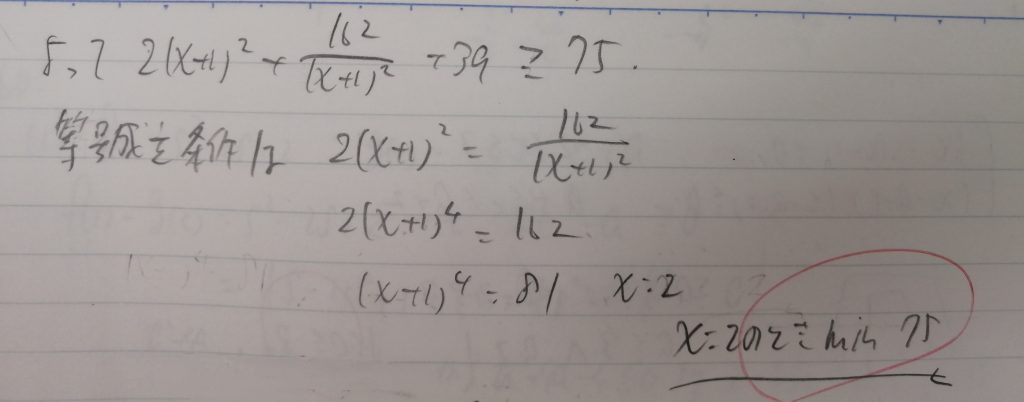 よって 2(x+1)² + 162/(x+1)² + 39 ≧ 75.
等号成立条件は 2(x+1)² = 162/(x+1)²
2(x+1)⁴ = 162
(x+1)⁴ = 81 x=2
x=2のとき min 75